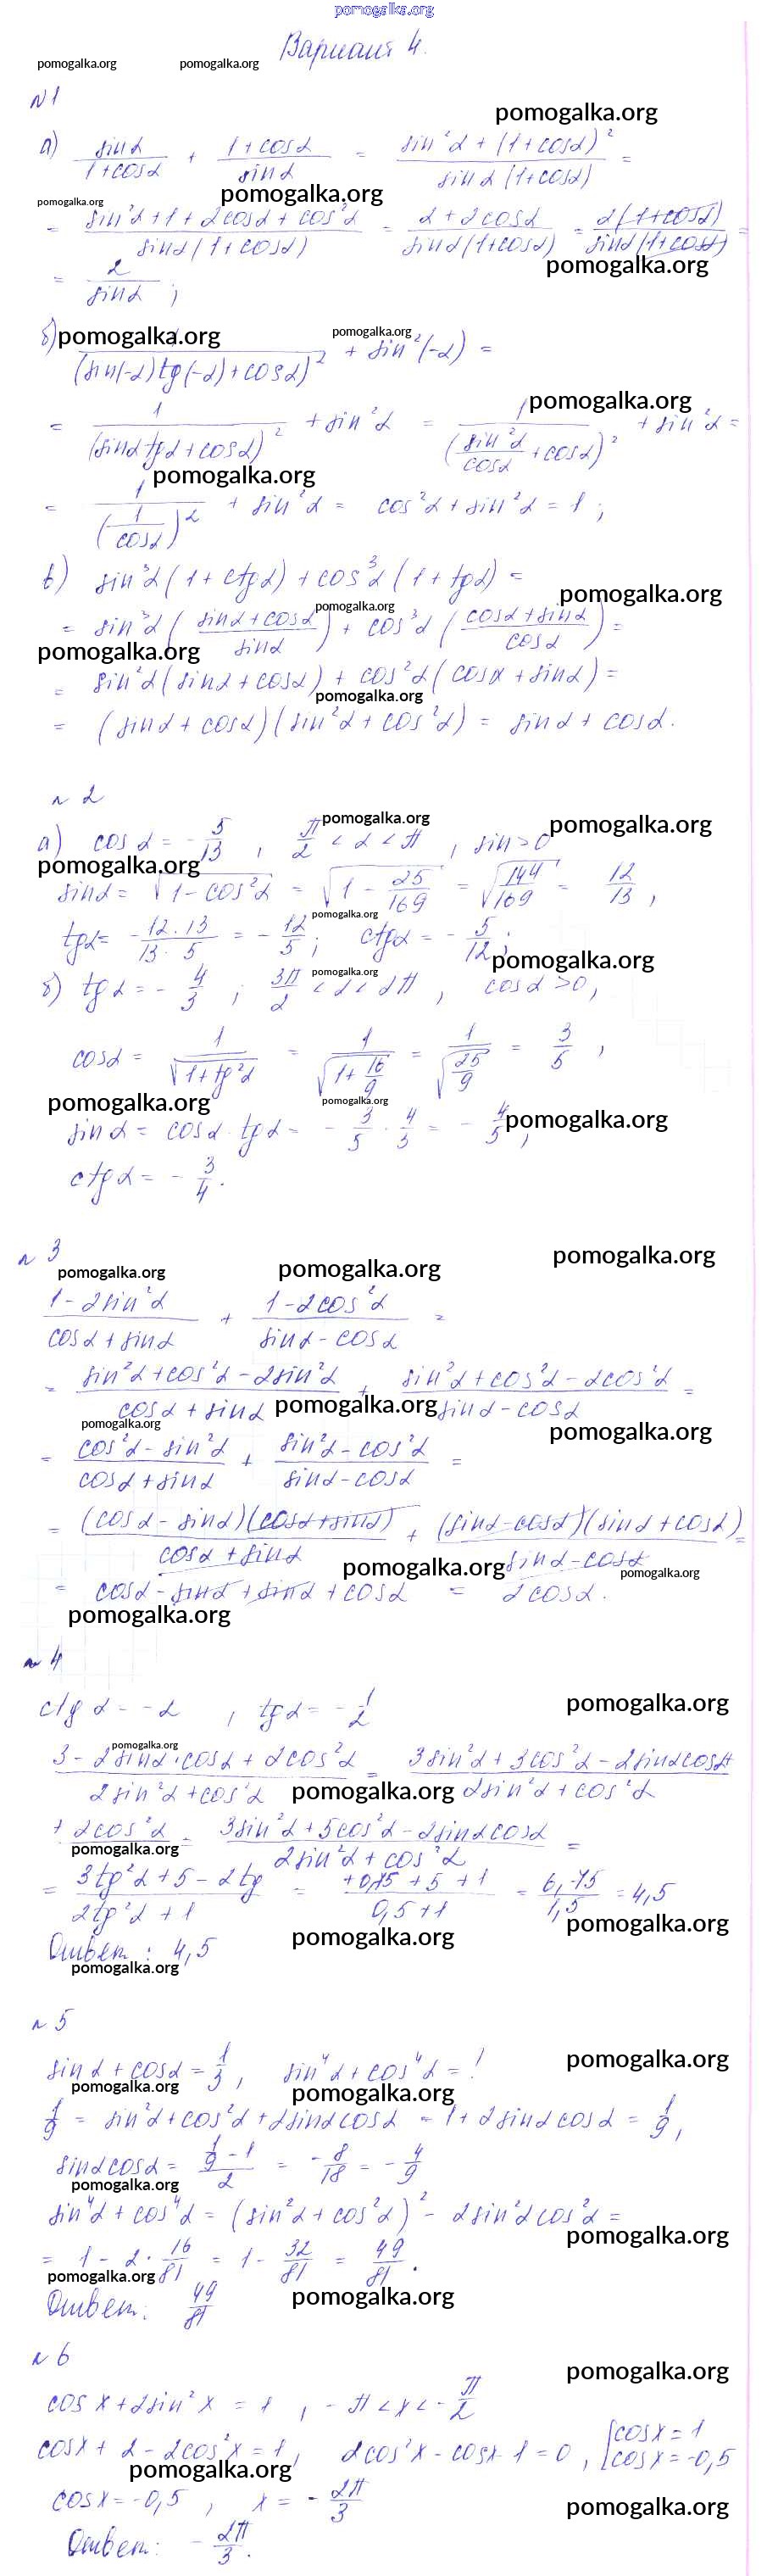 pomogalka.org
Вариант 4.
pomogalka.org pomogalka.org
№1
pomogalka.org
а) sinα/(1+cosα) + (1+cosα)/sinα = (sin²α + (1+cosα)²)/(sinα(1+cosα)) =
pomogalka.org pomogalka.org
= (sin²α+1+2cosα+cos²α)/(sinα(1+cosα)) = (2+2cosα)/(sinα(1+cosα)) = 2(1+cosα)/(sinα(1+cosα)) =
pomogalka.org
= 2/sinα ;
б) pomogalka.org pomogalka.org
/(sin(-α)tg(-α)+cosα)² + sin²(-α) =
pomogalka.org
= 1/(sinα tgα+cosα)² + sin²α = 1/(sin²α/cosα + cosα)² + sin²α =
pomogalka.org
= 1/(1/cosα)² + sin²α = cos²α + sin²α = 1 ;
в) sin³α(1+ctgα) + cos³α(1+tgα) =
pomogalka.org
pomogalka.org
= sin³α((sinα+cosα)/sinα) + cos³α((cosα+sinα)/cosα) =
pomogalka.org
= sin²α(sinα+cosα) + cos²α(cosα+sinα) =
pomogalka.org
= (sinα+cosα)(sin²α+cos²α) = sinα + cosα.
№2
pomogalka.org pomogalka.org
а) cosα = -5/13 , π/2 < α < π , sin>0
pomogalka.org
sinα = √(1-cos²α) = √(1 - 25/169) = √(144/169) = 12/13 ,
pomogalka.org
tgα = -(12·13)/(13·5) = -12/5 ; ctgα = -5/12 ;
pomogalka.org
pomogalka.org
б) tgα = -4/3 ; 3π/2 < α < 2π , cosα>0,
cosα = 1/√(1+tg²α) = 1/√(1+16/9) = 1/√(25/9) = 3/5 ,
pomogalka.org pomogalka.org
pomogalka.org
sinα = cosα·tgα = -3/5·4/3 = -4/5 ,
ctgα = -3/4.
№3
pomogalka.org
pomogalka.org pomogalka.org
(1-2sin²α)/(cosα+sinα) + (1-2cos²α)/(sinα-cosα) =
= (sin²α+cos²α-2sin²α)/(cosα+sinα) + (sin²α+cos²α-2cos²α)/(sinα-cosα) =
pomogalka.org
pomogalka.org pomogalka.org
= (cos²α-sin²α)/(cosα+sinα) + (sin²α-cos²α)/(sinα-cosα) =
= (cosα-sinα)(cosα+sinα)/(cosα+sinα) + (sinα-cosα)(sinα+cosα)/(sinα-cosα) =
pomogalka.org pomogalka.org
= cosα-sinα+sinα+cosα = 2cosα.
pomogalka.org
№4
pomogalka.org
ctgα = -2 , tgα = -1/2
pomogalka.org
(3-2sinα·cosα+2cos²α)/(2sin²α+cos²α) = (3sin²α+3cos²α-2sinαcosα+)/(2sin²α+cos²α)
pomogalka.org
+2cos²α = (3sin²α+5cos²α-2sinαcosα)/(2sin²α+cos²α) =
pomogalka.org
= (3tg²α+5-2tg)/(2tg²α+1) = (+0,75+5+1)/(0,5+1) = 6,75/1,5 = 4,5
pomogalka.org
pomogalka.org
Ответ: 4,5
pomogalka.org
№5
pomogalka.org
sinα+cosα = 1/3 , sin⁴α+cos⁴α = ?
pomogalka.org pomogalka.org
1/9 = sin²α+cos²α+2sinαcosα = 1+2sinαcosα = 1/9 ,
sinαcosα = (1/9-1)/2 = -8/18 = -4/9
pomogalka.org
sin⁴α+cos⁴α = (sin²α+cos²α)² - 2sin²αcos²α =
pomogalka.org
= 1-2·16/81 = 1-32/81 = 49/81 .
pomogalka.org
Ответ: 49/81
pomogalka.org
№6
pomogalka.org
cosx+2sin²x = 1 , -π<x<-π/2
cosx+2-2cos²x=1, 2cos²x-cosx-1=0 , [cosx=1 cosx=-0,5
pomogalka.org
cosx=-0,5 , x = -2π/3
pomogalka.org
Ответ: -2π/3.